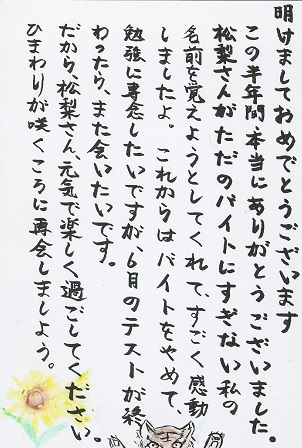 明けましておめでとうございます
この半年間、本当にありがとうございました。
松梨さんがただのバイトにすぎない私の
名前を覚えようとしてくれて、すごく感動
しましたよ。これからはバイトをやめて、
勉強に専念したいですが、6月のテストが終
わったら、また会いたいです。
だから、松梨さん、元気で楽しく過ごしてください。
ひまわりが咲くころに再会しましょう。